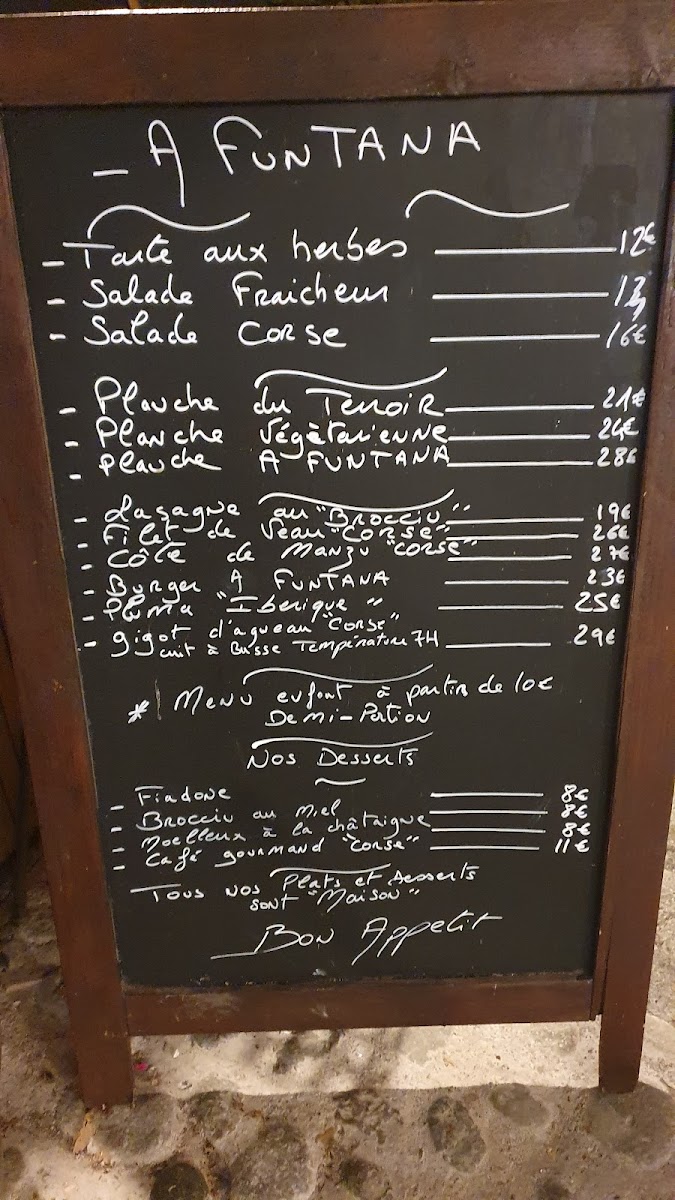 - A FUNTANA
- Tarte aux herbes 12€
- Salade Fraicheur
- Salade Corse 16€
- Planche du Terroir 21€
- Planche Végètarienne 24€
- Planche A FUNTANA 28€
- Lasagne au "Brocciu" 19€
- Filet de Veau "CORSE" 26€
- Côte de Manzu "CORSE" 27€
- Burger A FUNTANA 23€
- Pluma "Iberique" 25€
- gigot d'agneau "Corse"
cuit à Basse Température 7H 29€
* Menu enfant à partir de 10€
Demi-Portion
Nos Desserts
- Fiadone 8€
- Brocciu au Miel 8€
- Moelleux à la châtaigne 8€
- Café gourmand "Corse" 11€
Tous nos Plats et Desserts
sont "Maison"
Bon Appetit